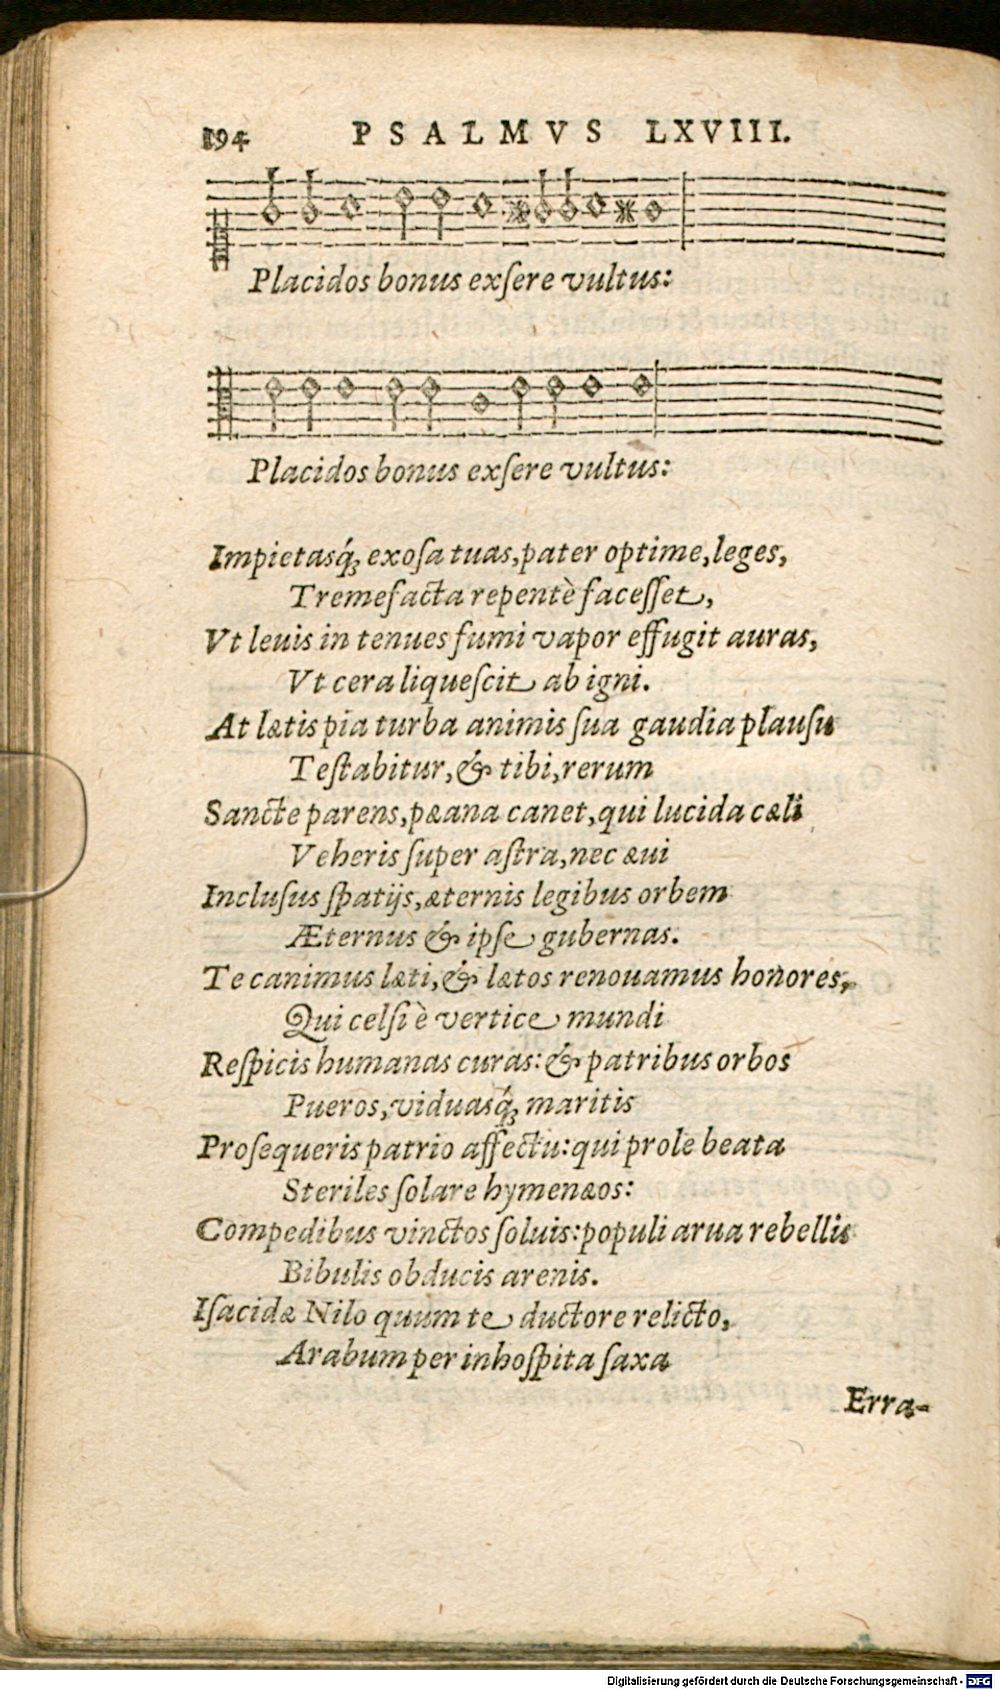 194 PSALMVS LXVIII.
Placidos bonus exſere vultus:
Placidos bonus exſere vultus:
Impietasq́; exoſa tuas, pater optime, leges,
Tremefacta repentè faceſſet,
Vt leuis in tenues fumi vapor effugit auras,
Vt cera liqueſcit ab igni.
At lætis pia turba animis ſua gaudia plauſu
Teſtabitur, & tibi, rerum
Sancte parens, pæana canet, qui lucida cæli
Veheris ſuper aſtra, nec æui
Incluſus ſpatijs, æternis legibus orbem
Æternus & ipſe gubernas.
Te canimus læti, & lætos renouamus honores,
Qui celſi è vertice mundi
Reſpicis humanas curas: & patribus orbos
Pueros, viduasq́; maritis
Proſequeris patrio affectu: qui prole beata
Steriles ſolare hymenæos:
Compedibus vinctos ſoluis: populi arua rebellis
Bibulis obducis arenis.
Iſacidæ Nilo quum te ductore relicto,
Arabum per inhoſpita ſaxa
Erra-
Digitalisierung gefördert durch die Deutsche Forschungsgemeinschaft - DFG